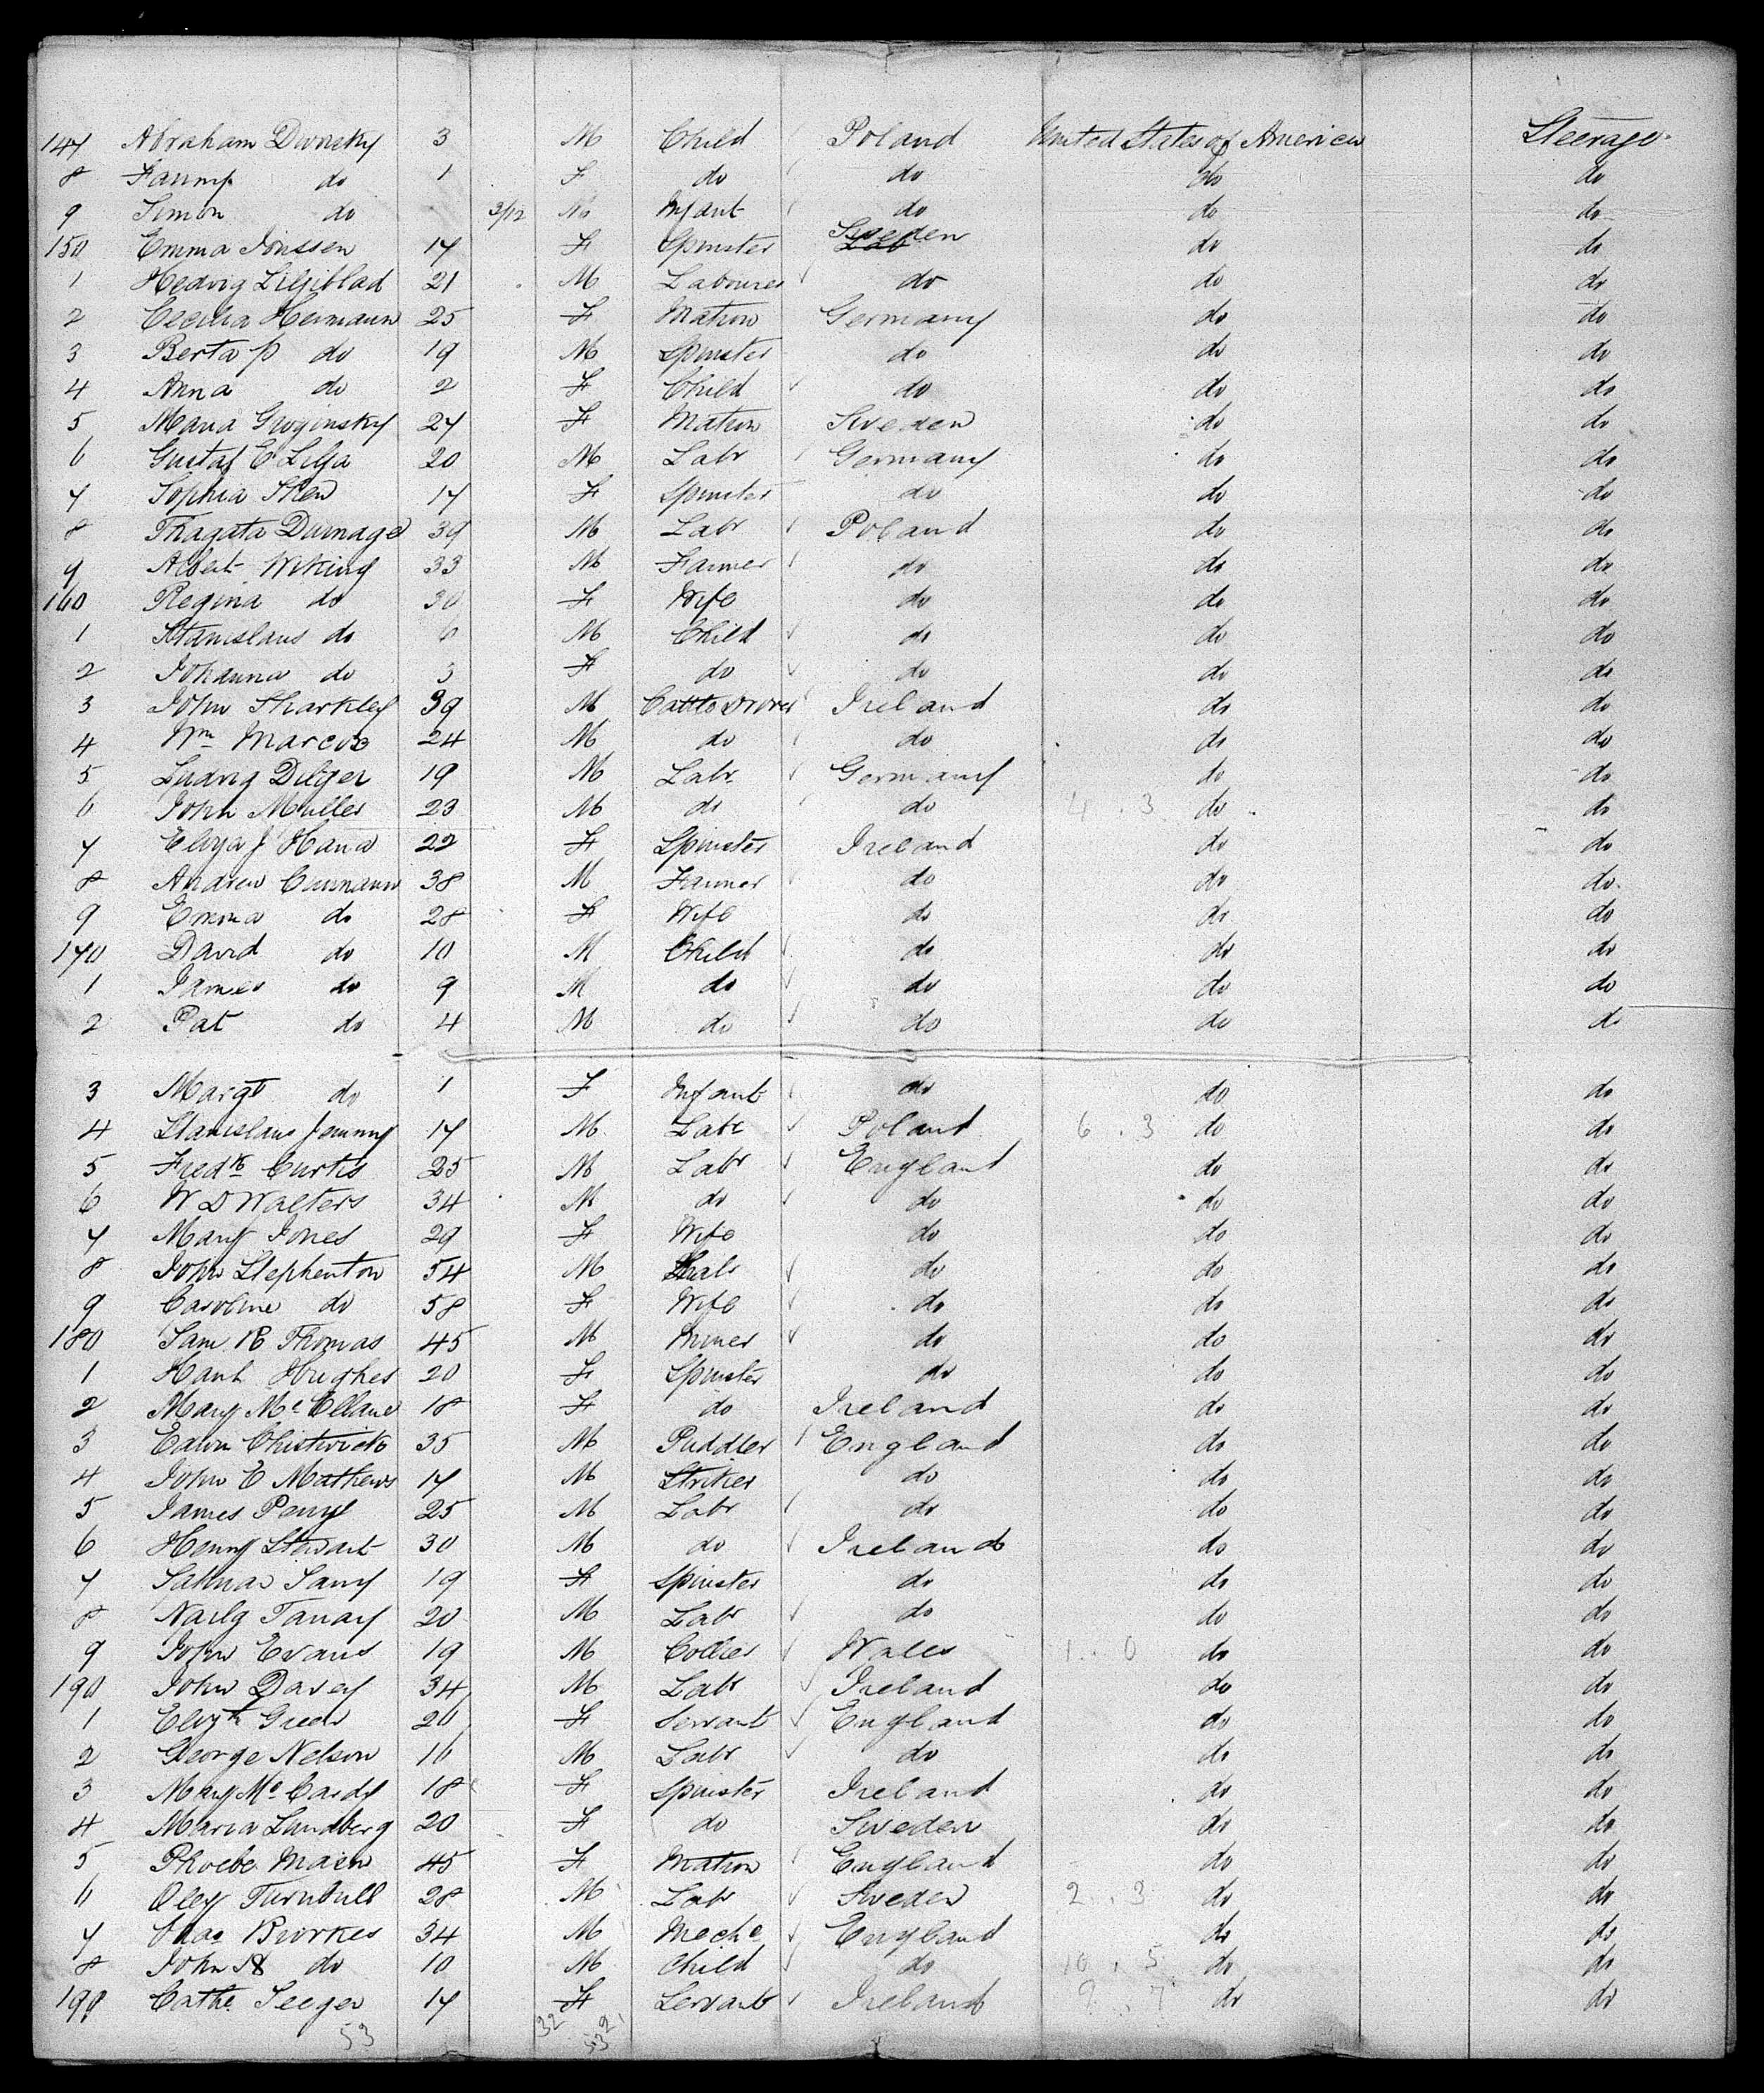 147 Abraham Dwnsky 3 M Child Poland United States of America Steerage
8 Fanny do 1 F do do do do
9 Simon do 3/12 M Infant do do do
150 Emma Jonssen 17 F Spinster Sweden do do
1 Hedvig Liljiblad 21 M Labourer do do do
2 Cecilia Hermann 25 F Matron Germany do do
3 Berta p do 19 M Spinster do do do
4 Anna do 2 F Child do do do
5 Maria Groginsky 27 F Matron Sweden do do
6 Gustaf E Lilja 20 M Labr Germany do do
7 Sophia 17 F Spinster do do do
8 Thagata 39 M Labr Poland do do
9 Albert Wiking 33 M Farmer do do do
160 Regina do 30 F Wife do do do
1 Stanislaus do 6 M Child do do do
2 Johanna do 3 F do do do do
3 John Sharkley 39 M Cattle Drover Ireland do do
4 Wm Marcos 24 M do do do do
5 Ludvig Dilger 19 M Labr Germany do do
6 John Muller 23 M do do 4 . 3 do do
7 Eliza J Hana 22 F Spinster Ireland do do
8 Andrew 38 M Farmer do do do
9 Emma do 28 F Wife do do do
170 David do 10 M Child do do do
1 James do 9 M do do do do
2 Pat do 4 M do do do do
3 Margt do 1 F Infant do do do
4 Stanislaus Jemmy 17 M Labr Poland 6 . 3 do do
5 Fredk Curtis 25 M Labr England do do
6 W D Walters 34 M do do do do
7 Mary Jones 29 F Wife do do do
8 John Stephenton 54 M Labr do do do
9 Caroline do 58 F Wife do do do
180 Sam R Thomas 45 M Miner do do do
1 Hanh Hughes 20 F Spinster do do do
2 Mary Mc Ellane 18 F do Ireland do do
3 Edwn Chistwick 35 M Puddler England do do
4 John E Mathews 17 M Striker do do do
5 James Perry 25 M Labr do do do
6 Henry Stewart 30 M do Ireland do do
7 19 F Spinster do do do
8 20 M Labr do do do
9 John Evans 19 M Collier Wales 1 . 0 do do
190 John Davey 34 M Labr Ireland do do
1 Elizth Green 20 F Servant England do do
2 George Nelson 16 M Labr do do do
3 Mary Mc Cardy 18 F Spinster Ireland do do
4 Maria Lundberg 20 F do Sweden do do
5 Phoebe Masn 45 F Matron England do do
6 Oley Turnbull 28 M Labr Sweden 2 . 3 do do
7 Isaac Birkes 34 M Meche England do do
8 John H do 10 M Child do 10 . 5 do do
199 Cathe Seeger 17 F Servant Ireland 9 . 7 do do
53 32 21
53